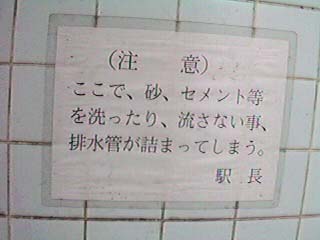 (注 意)
ここで、砂、セメント等
を洗ったり、流さない事、
排水管が詰まってしまう。
駅 長